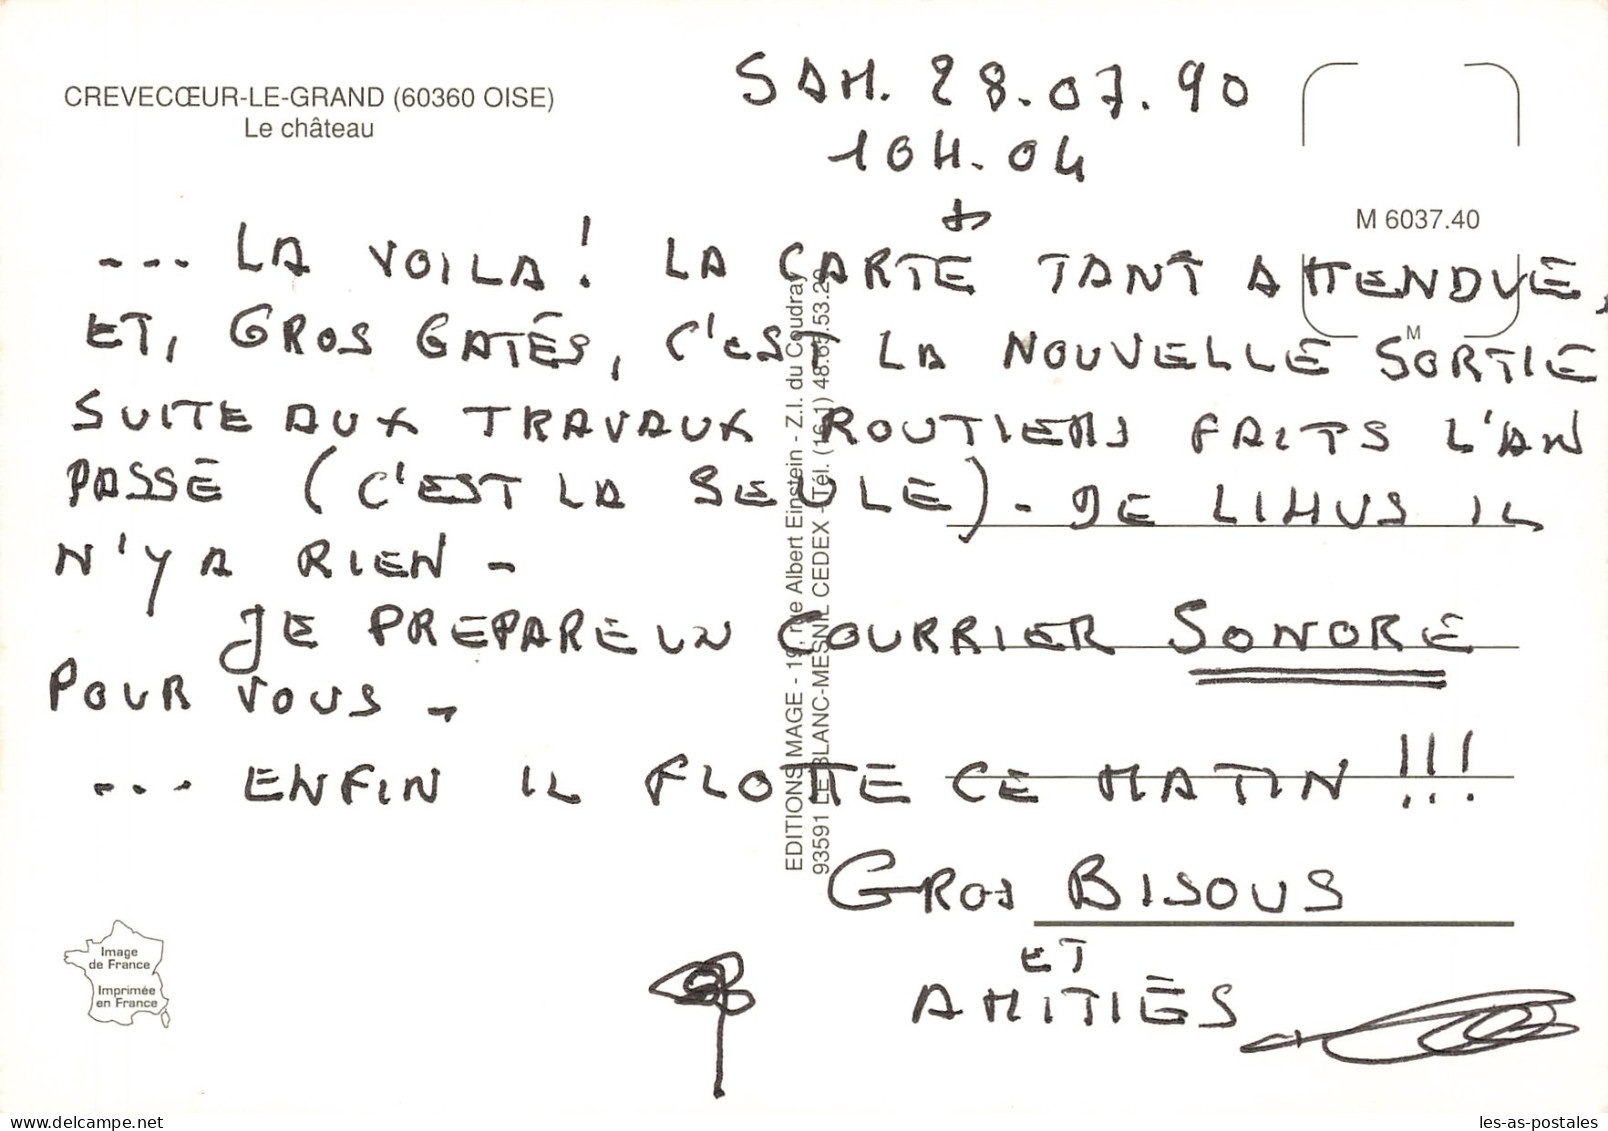 CREVECŒUR-LE-GRAND (60360 OISE)
Le château
SAM. 28.07.90
10H.04
M 6037.40
M
... LA VOILA ! LA CARTE TANT ATTENDUE,
ET, GROS GATÉS, C'EST LA NOUVELLE SORTIE
SUITE AUX TRAVAUX ROUTIERS FAITS L'AN
PASSÉ (C'EST LA SEULE) - DE LIHUS IL
N'Y A RIEN -
JE PREPARE UN COURRIER SONORE
POUR VOUS -
... ENFIN IL FLOTTE CE MATIN !!!
GROS BISOUS
ET
AMITIÉS
EDITIONS IMAGE - 19, rue Albert Einstein - Z.I. du Coudray
93591 LE BLANC-MESNIL CEDEX - Tél. (16.1) 48.65.53.2
Image
de France
Imprimée
en France
delcampe.net
les-as-postales